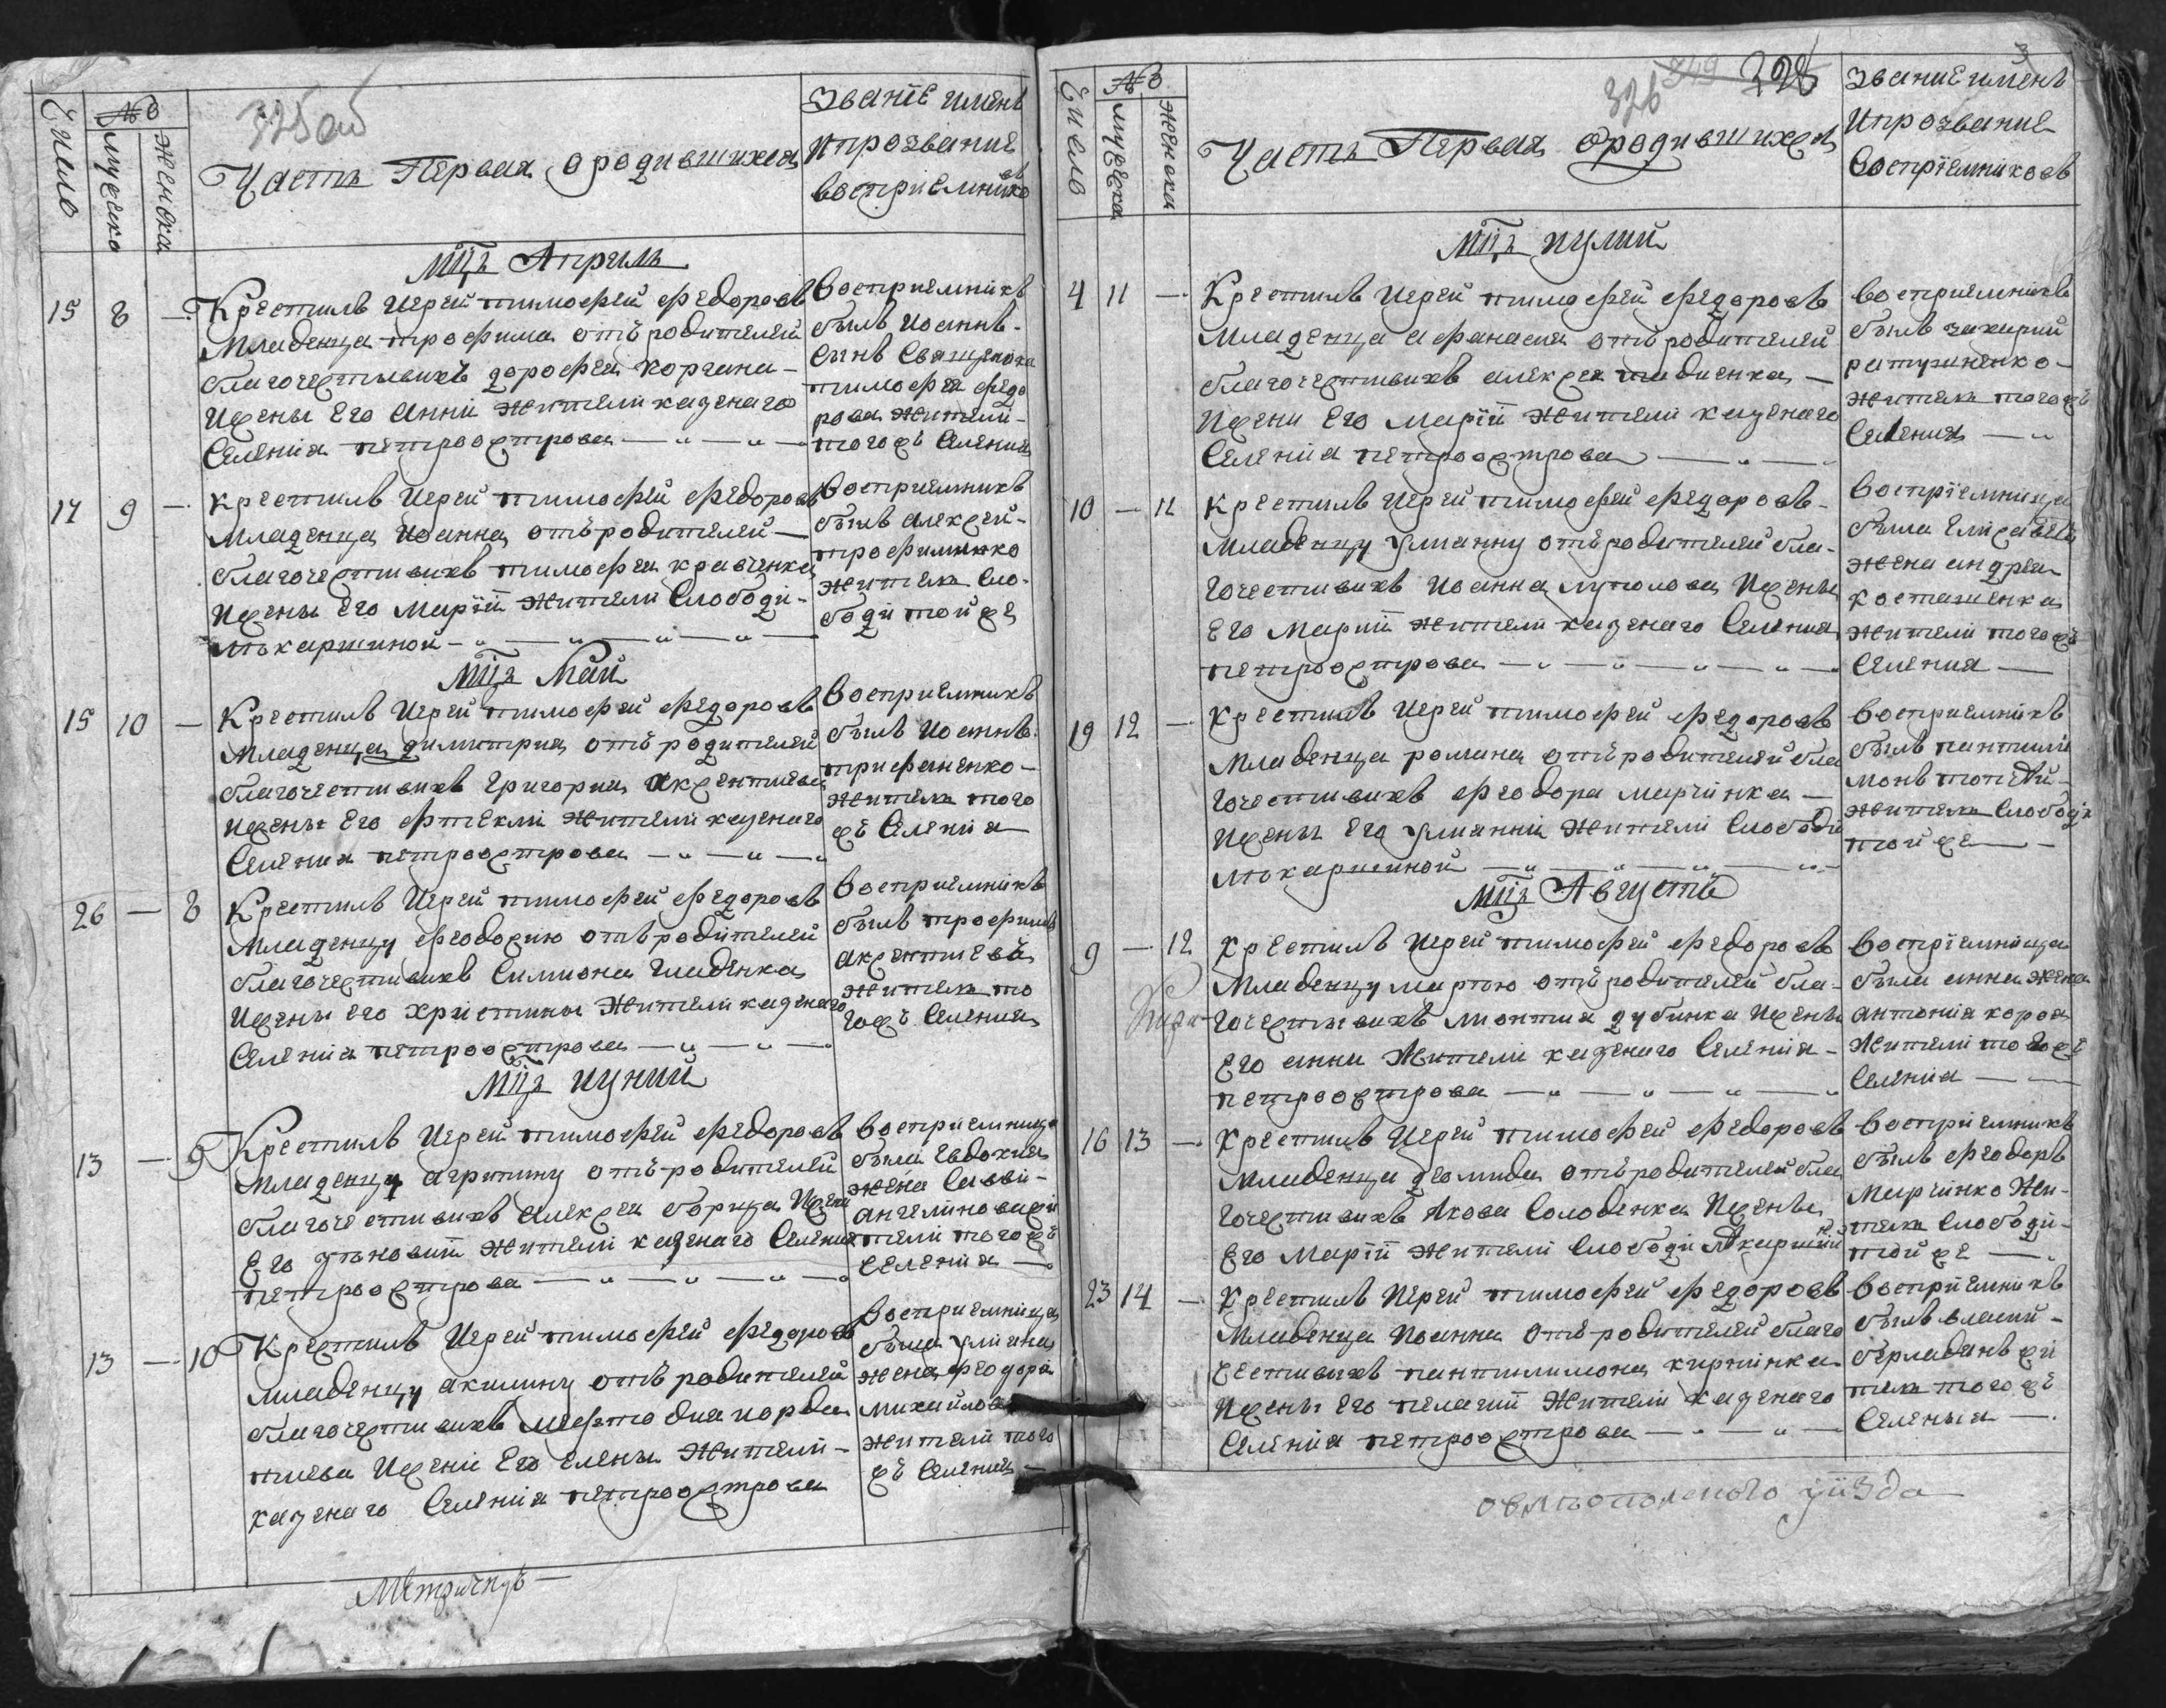 325 об
Число
№
Мужеска
Женска
Часть Первая о родившихся
Званіе имень
и прозвание
восприемников
Мцъ Априль
15 8 — Крестилъ Иерей тимофей федоровъ
младенца трофима отъ родителей
благочестивихъ дорофея Коргана —
и жены Его Анни жители казенаго
Селенія петроострова
восприемникъ
былъ Иоаннъ
Сынъ Священика
тимофея федо
рова жители
того жъ Селения
17 9 — крестилъ Иерей тимофей федоровъ
младенца Иоанна отъ родителей —
благочестивихъ тимофея кравченка
и жены Его Марїй жители Слободи
восприемникъ
былъ алексей
трофименко
житель Сло-
боди той же
Мцъ Май
15 10 — Крестилъ Иерей тимофей федоровъ
младенца димитрия отъ родителей
благочестивихъ григория Аксентиева
и жены Его фтекли жители казенаго
Селения петроострова
восприемникъ
былъ Иоаннъ
трифаненко —
житель того
жъ Селенія
26 — 8 Крестилъ Иерей тимофей федоровъ
младенцу феодосию отъ родителей
благочестивихъ Симиона гладенка
и жены Его христины жители казенаго
Селенія петроострова
восприемникъ
былъ трофимъ
аксентиевъ
житель то
гожъ Селения
Мцъ иуний
13 — 9 Крестилъ Иерей тимофей федоровъ
младенцу агрипину отъ родителей
благочестивихъ алексея борща и жени
Его жители казенаго Селения
петроострова
восприемница
была Евдокия
жена Савви
жи
тели того жъ
Селенія
13 — 10 Крестилъ Иерей тимофей федоровъ
младенцу акилину отъ родителей
благочестивихъ мефтодия иорда
тиева и жени Его Елены жители
казенаго Селенія петроострова
восприемница
была улияна
жена феодора
михайлова
жители того
жъ Селения
Метричнуъ
326 328
3
Число
№
Мужеска
Женска
Часть Первая о родившихся
Звание имень
и прозвание
восприемниковъ
Мцъ иулий
4 11 — Крестилъ Иерей тимофей федоровъ
младенца афанасия отъ родителей
благочестивихъ алексея гладиенка —
и жени Его Марїй жители казенаго
Селенія петроострова
восприемникъ
былъ захарий
ратушненко —
житель того жъ
Селения
10 — 11 крестилъ Иерей тимофей федоровъ
младенцу улианну отъ родителей бла-
гочестивихъ Иоанна луполова и жены
Его Марий жители казенаго Селения
петроострова
восприемница
была Елисавета
жена андрея
косташенка
жители того жъ
Селения —
19 12 — крестилъ Иерей тимофей федоровъ
младенца романа отъ родителей бла
гочестивихъ феодора марчинка —
и жены Его улианни жители Слободи
восприемникъ
былъ пантили
монъ топчій
житель Слободи
той же —
Мцъ Августъ
9 — 12 крестилъ Иерей тимофей федоровъ
младенцу марию отъ родителей бла-
гочестивихъ лионтия дубинка и жены
Его анни жители казенаго Селенія —
петроострова
восприемница
была анна жена
антонія короя
жители того жъ
Селенія
16 13 — Крестилъ Иерей тимофей федоровъ
младенца деомида отъ родителей бла
гочестивихъ Якова Солоденка и жены
Его Марїй жители Слободи
восприемникъ
былъ феодоръ
Марчинко жи-
тель Слободи
той же —
23 14 — Крестилъ Иерей тимофей федоровъ
младенца Иоанна отъ родителей благо
честивихъ пантилимона киртинка
и жены Его пелагий жители казенаго
Селенія петроострова
восприемникъ
былъ власий
берладинъ жи
тель того жъ
Селенія —
овлиопольского уизда